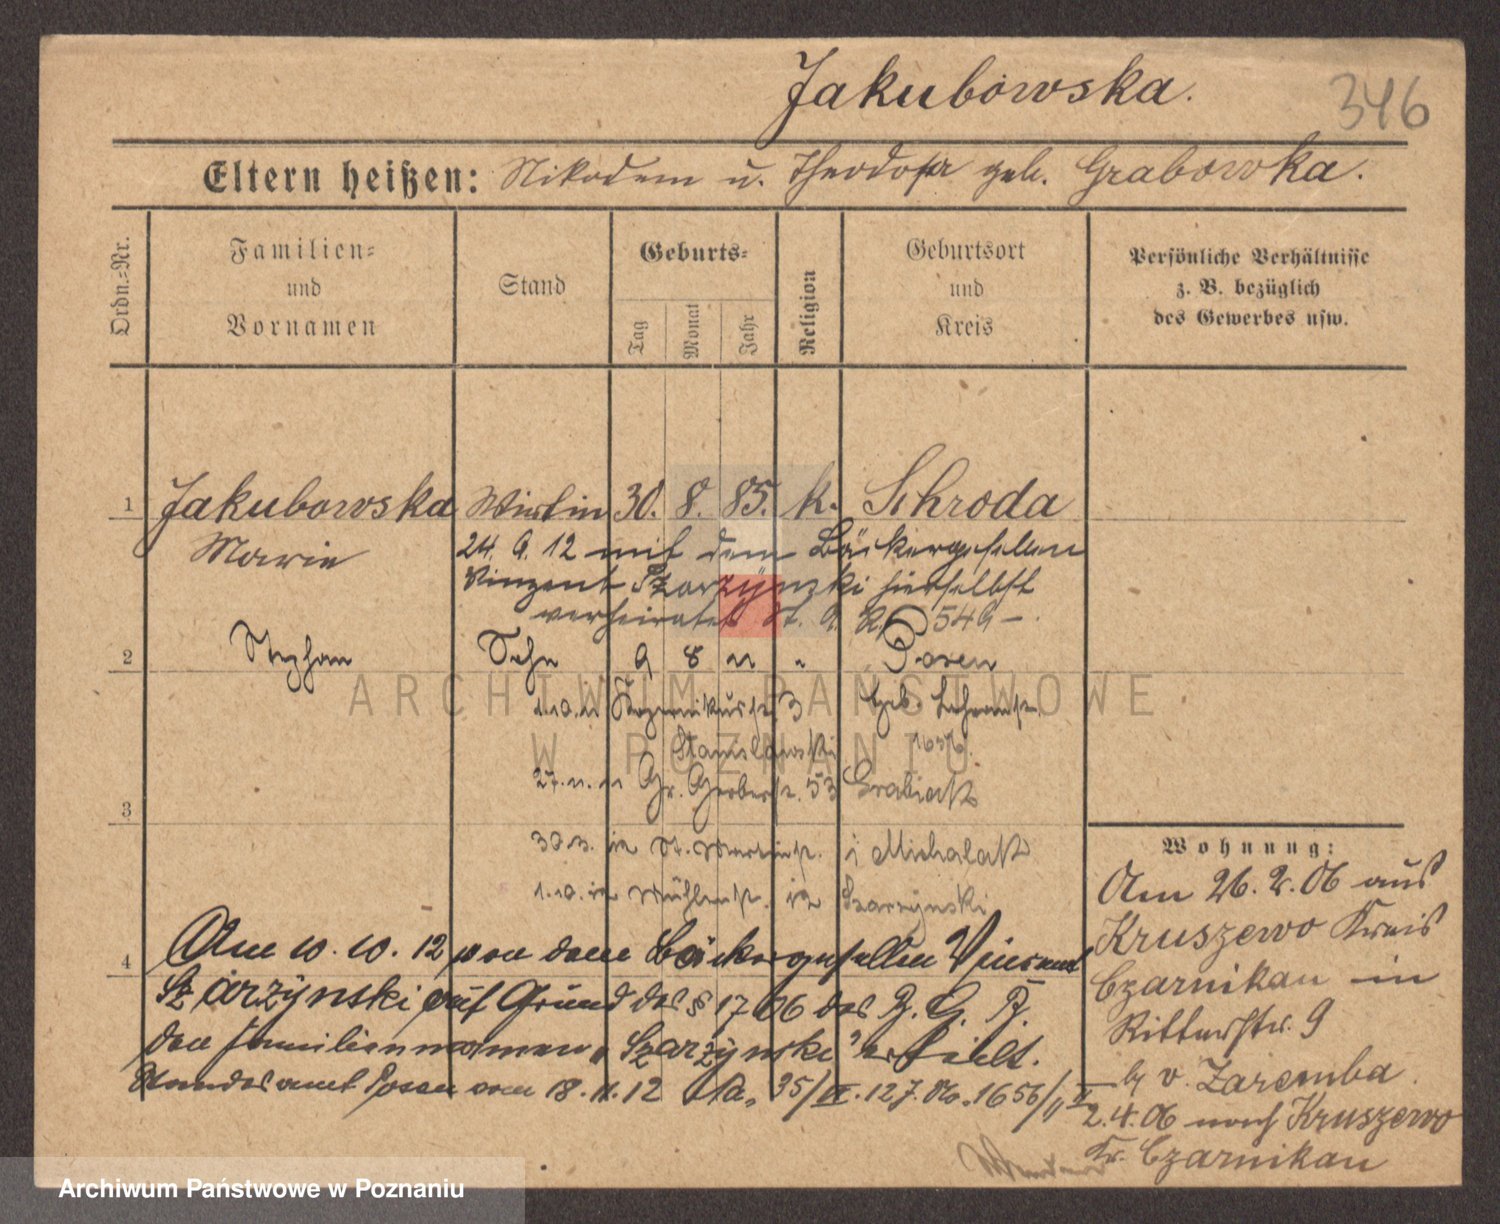 Jakubowska.
346
Eltern heißen: Nikodem u. Theodosia geb. Grabowka.
Ordn.=Nr.
Familien= und Vornamen
Stand
Geburts=
Tag
Monat
Jahr
Religion
Geburtsort und Kreis
Persönliche Verhältnisse
z. B. bezüglich
des Gewerbes usw.
1 Jakubowska Wirtin 30. 8. 85. k. Schroda
Marie
24. 9. 12 mit dem Bäckergesellen
Vinzent Szarzynski hierselbst
verheiratet St. A. R. 549
2 Stephan Sohn 9 8 11 " Posen
1.10.11 3
Stanislawski
27.11.11 Gr. Gerberstr. 53 Grabiak
3
30.3.12 St. Martinstr. Michalak
1.10.12 Mühlenstr. 12 Szarzynski
Am 10.10.12 von dem Bäckergesellen Vincent
4
Szarzynski auf Grund des § 1706 des B. G. B.
den Familiennamen „Szarzynski" erteilt.
Standesamt Posen vom 18.11.12
Wohnung:
Am 26.2.06 aus
Kruszewo Kreis
Czarnikau in
Ritterstr. 9
b/ v. Zaremba
2.4.06 nach Kruszewo
Kr. Czarnikau
ARCHIWUM PAŃSTWOWE
W POZNANIU
Archiwum Państwowe w Poznaniu